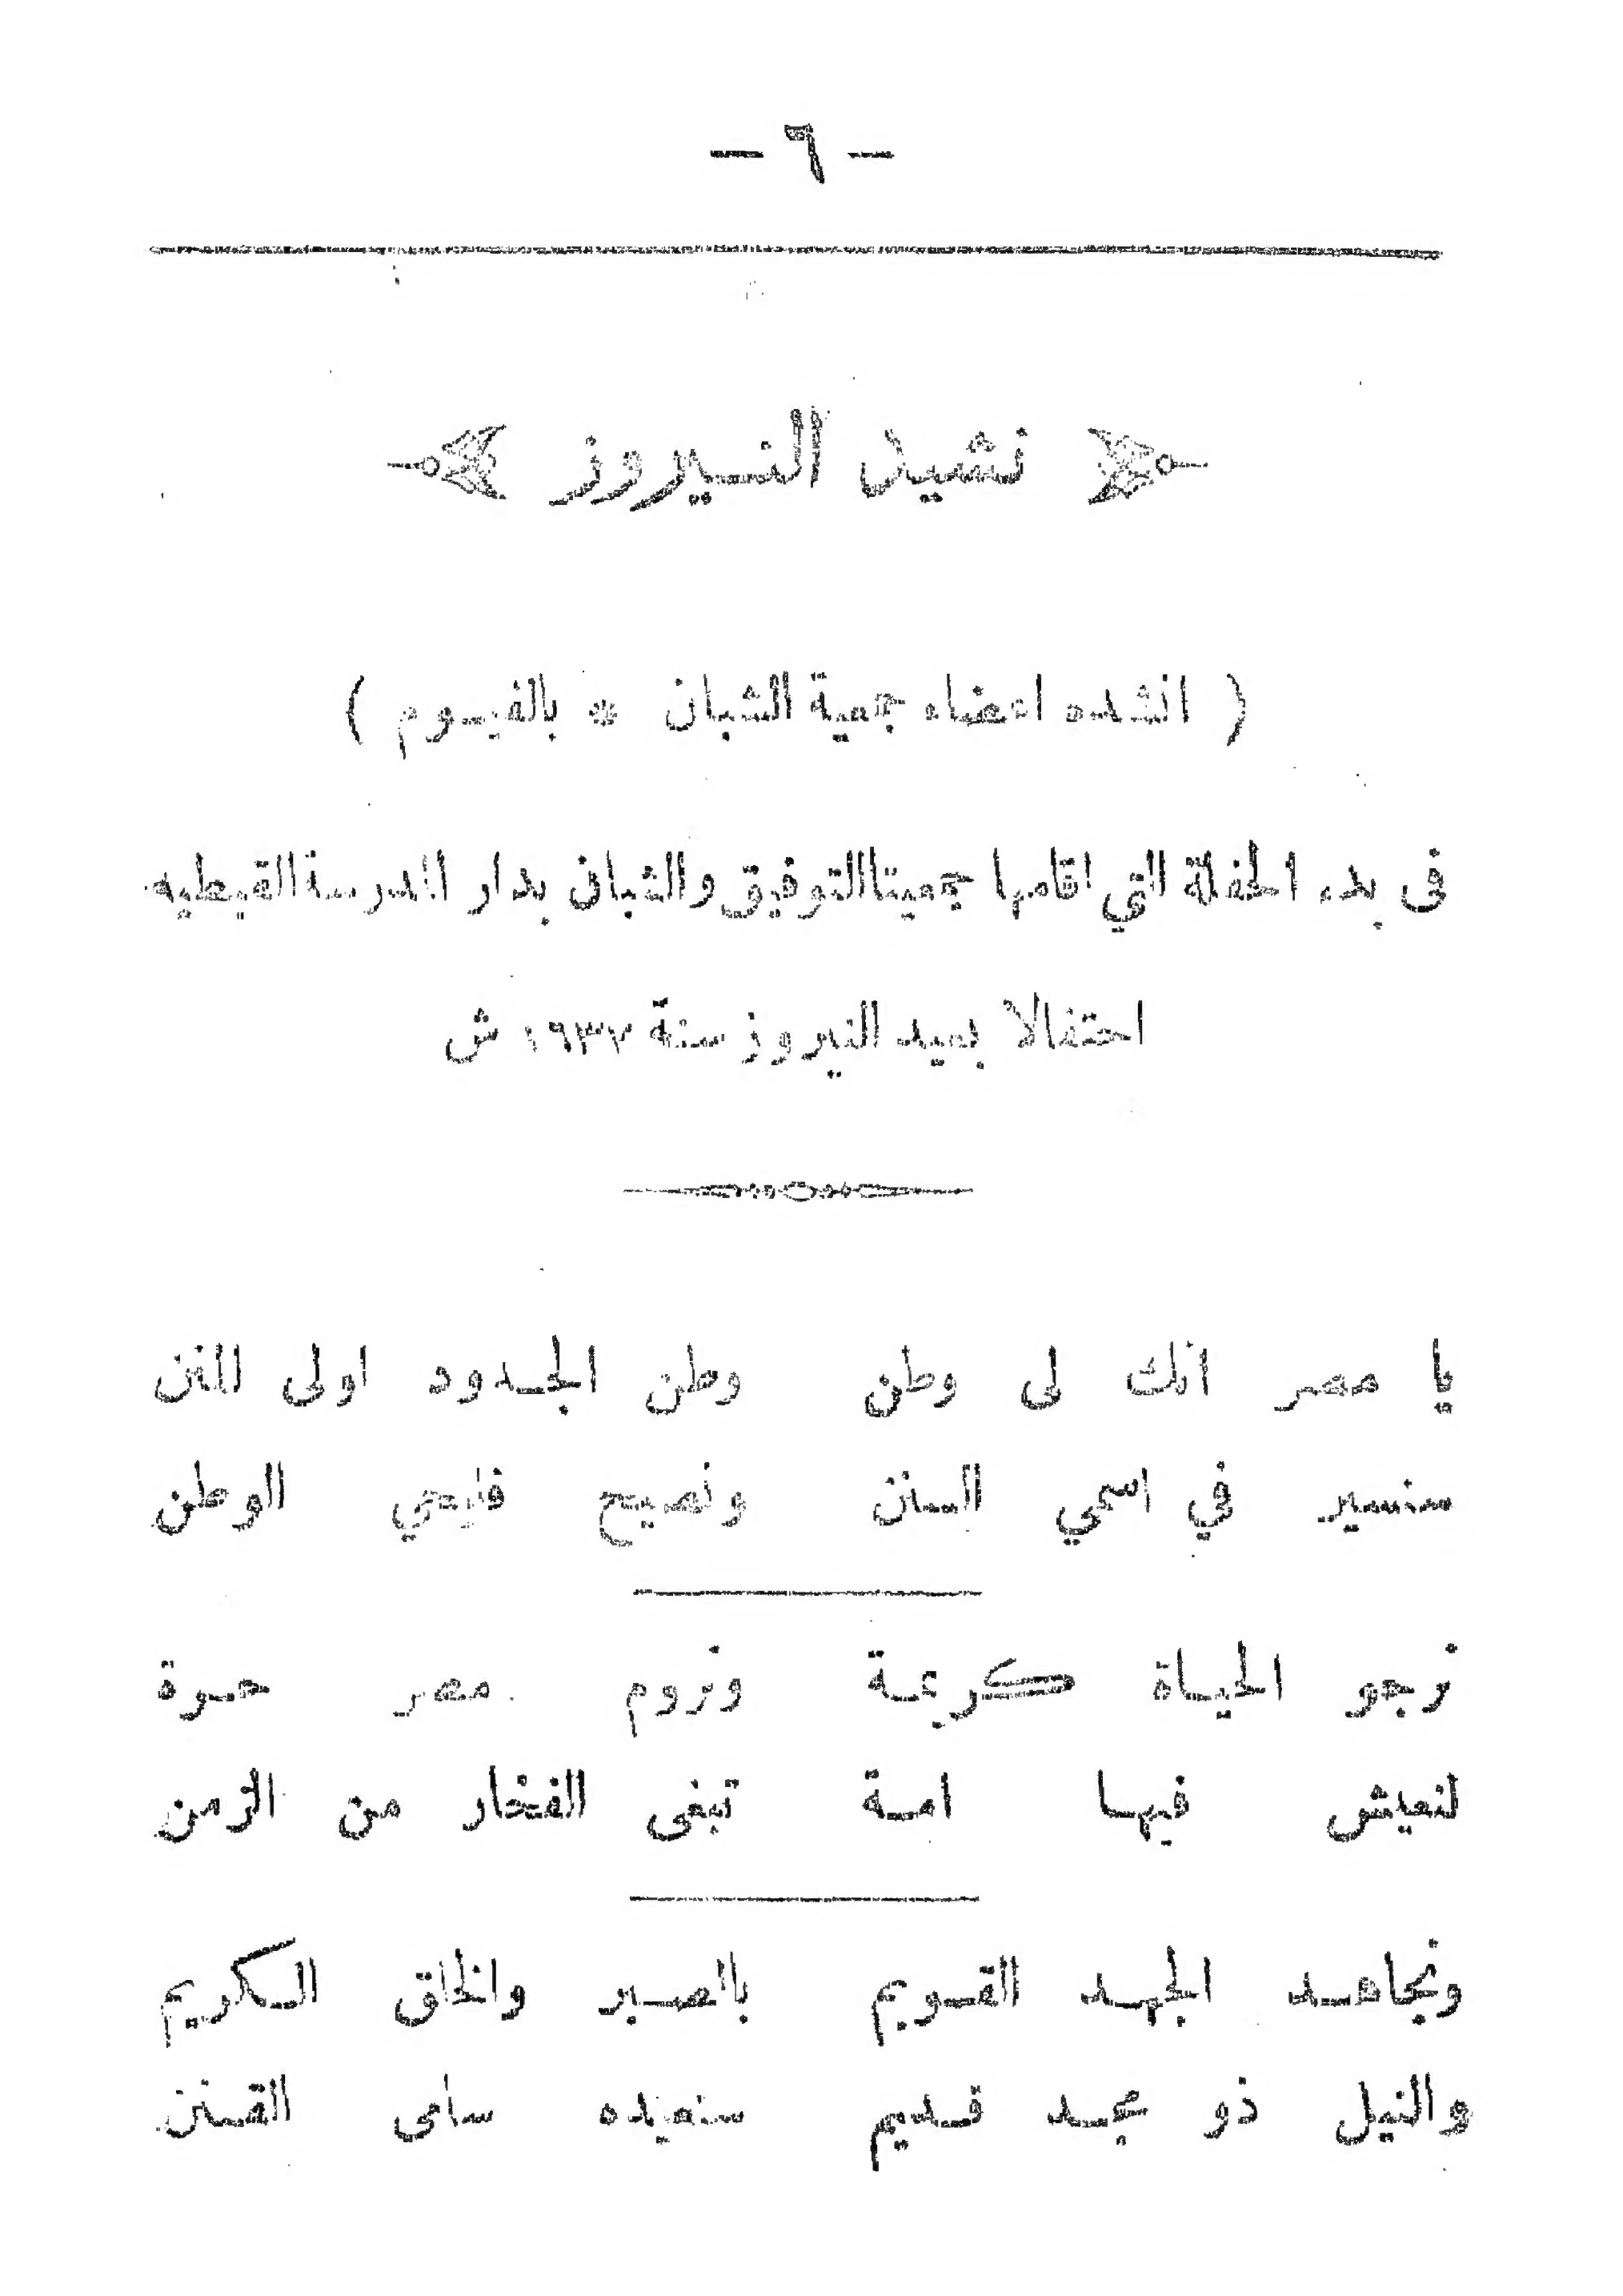 — ٦ —
نشيد النيروز
( انشده اعضاء جمعية الشبان * بالفيوم )
فى بدء الحفلة التي اقامها جمعيتا التوفيق والشبان بدار المدرسة القبطيه
احتفالا بعيد النيروز سنة ١٩٣٣ ش
يا مصر انك لى وطن وطن الجدود اولى المنن
سنسير في اسمي السنن ونصيح فليحي الوطن
نرجو الحياة كريمة ونروم مصر حرة
لنعيش فيها امة تبغى الفخار من الزمن
ونجاهد الجهد القويم بالصبر والخلق الكريم
والنيل ذو مجد قديم سنعيده سامى القنن